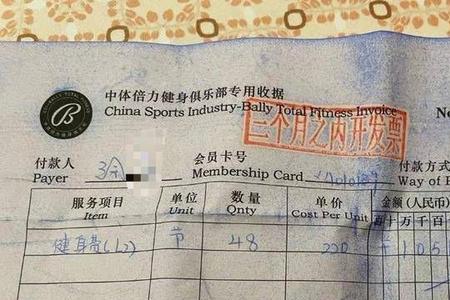 中体倍力健身俱乐部专用收据
China Sports Industry-Bally Total Fitness Invoice
三个月之内开发票
No
付款人 会员卡号 付款方式
Payer Membership Card Way of P
服务项目 单位 数量 单价 金额(人民币)
Item Unit Qnty Cost Per Unit 百十万千百
健身费(L2) 节 48 220 1 0 5